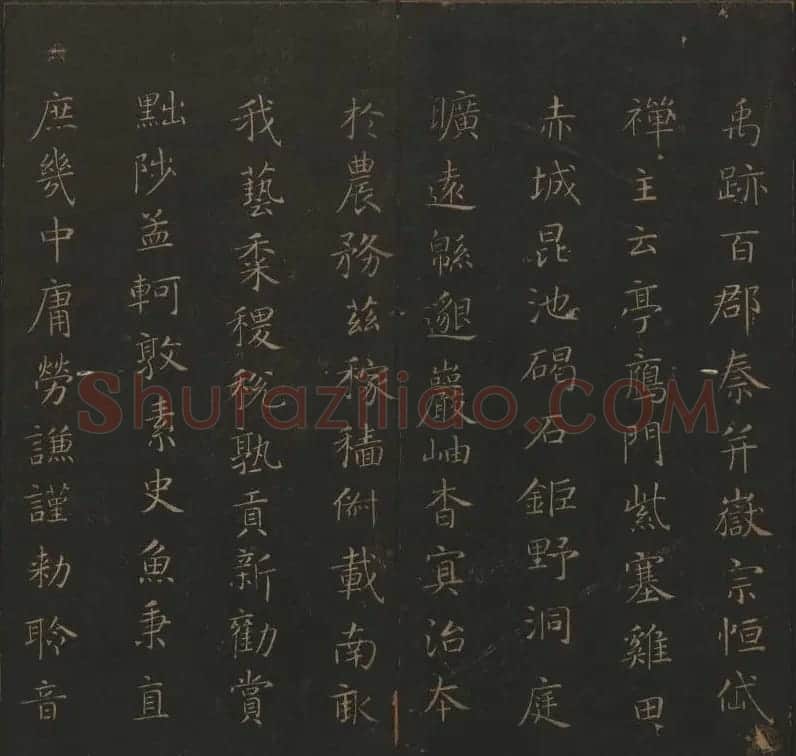 禹跡百郡秦并嶽宗恒岱
禪主云亭鴈門紫塞雞田
赤城昆池碣石鉅野洞庭
曠遠緜邈巖岫杳冥治本
於農務茲稼穡俶載南畝
我藝黍稷稅孰貢新勸賞
黜陟孟軻敦素史魚秉直
庶幾中庸勞謙謹勅聆音
Shufaziliao.COM